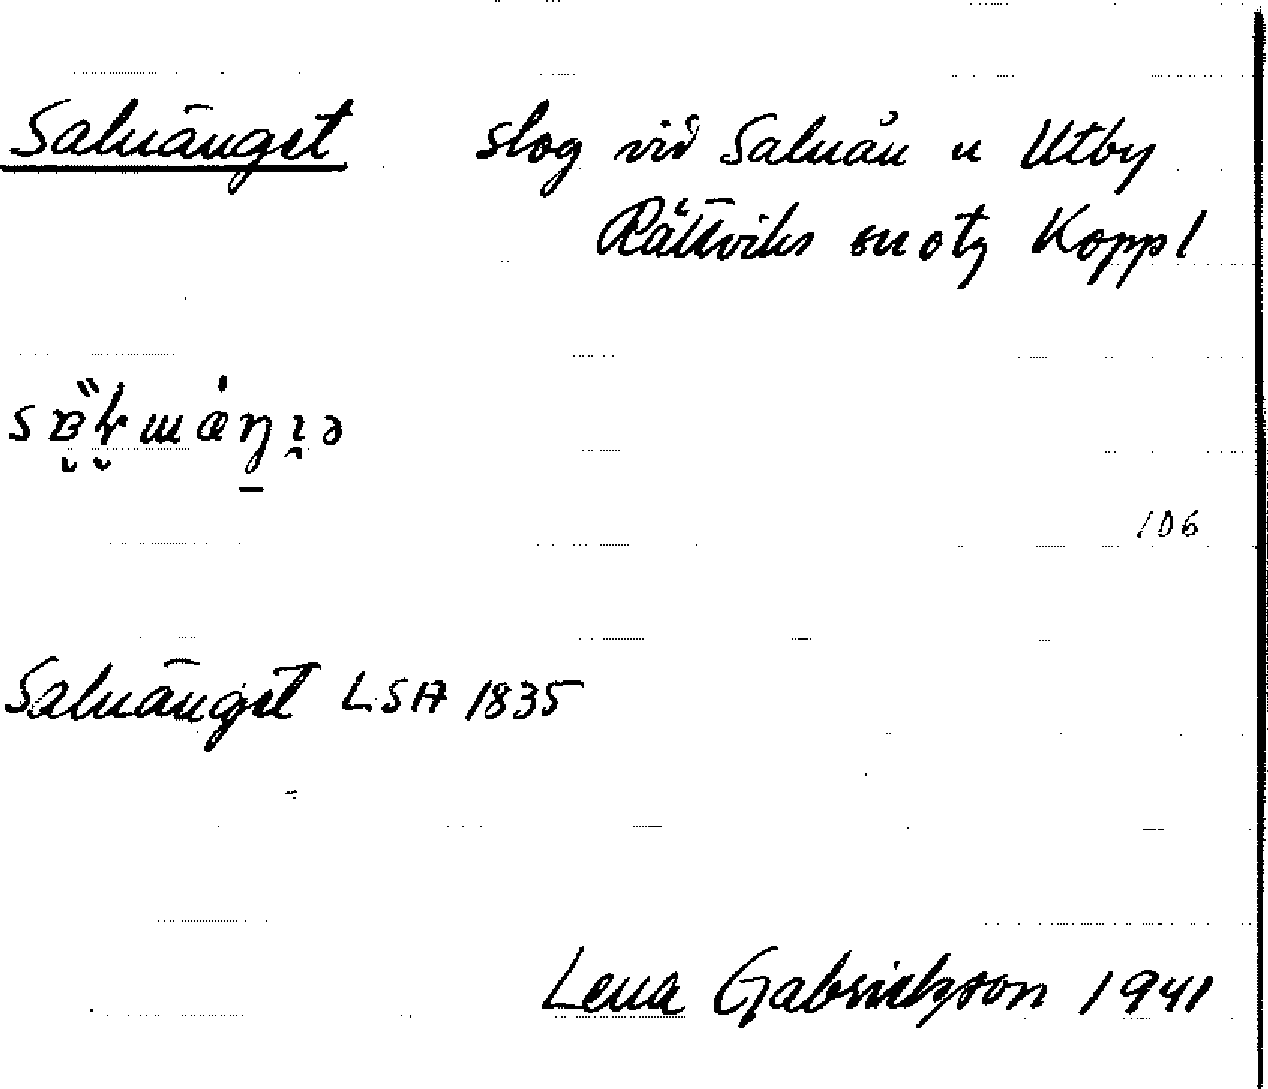 Saluänget slog vid Saluån n Utby
Rättviks sn o tg Koppl
106
Saluänget LSA 1835
Lena Gabrielsson 1941